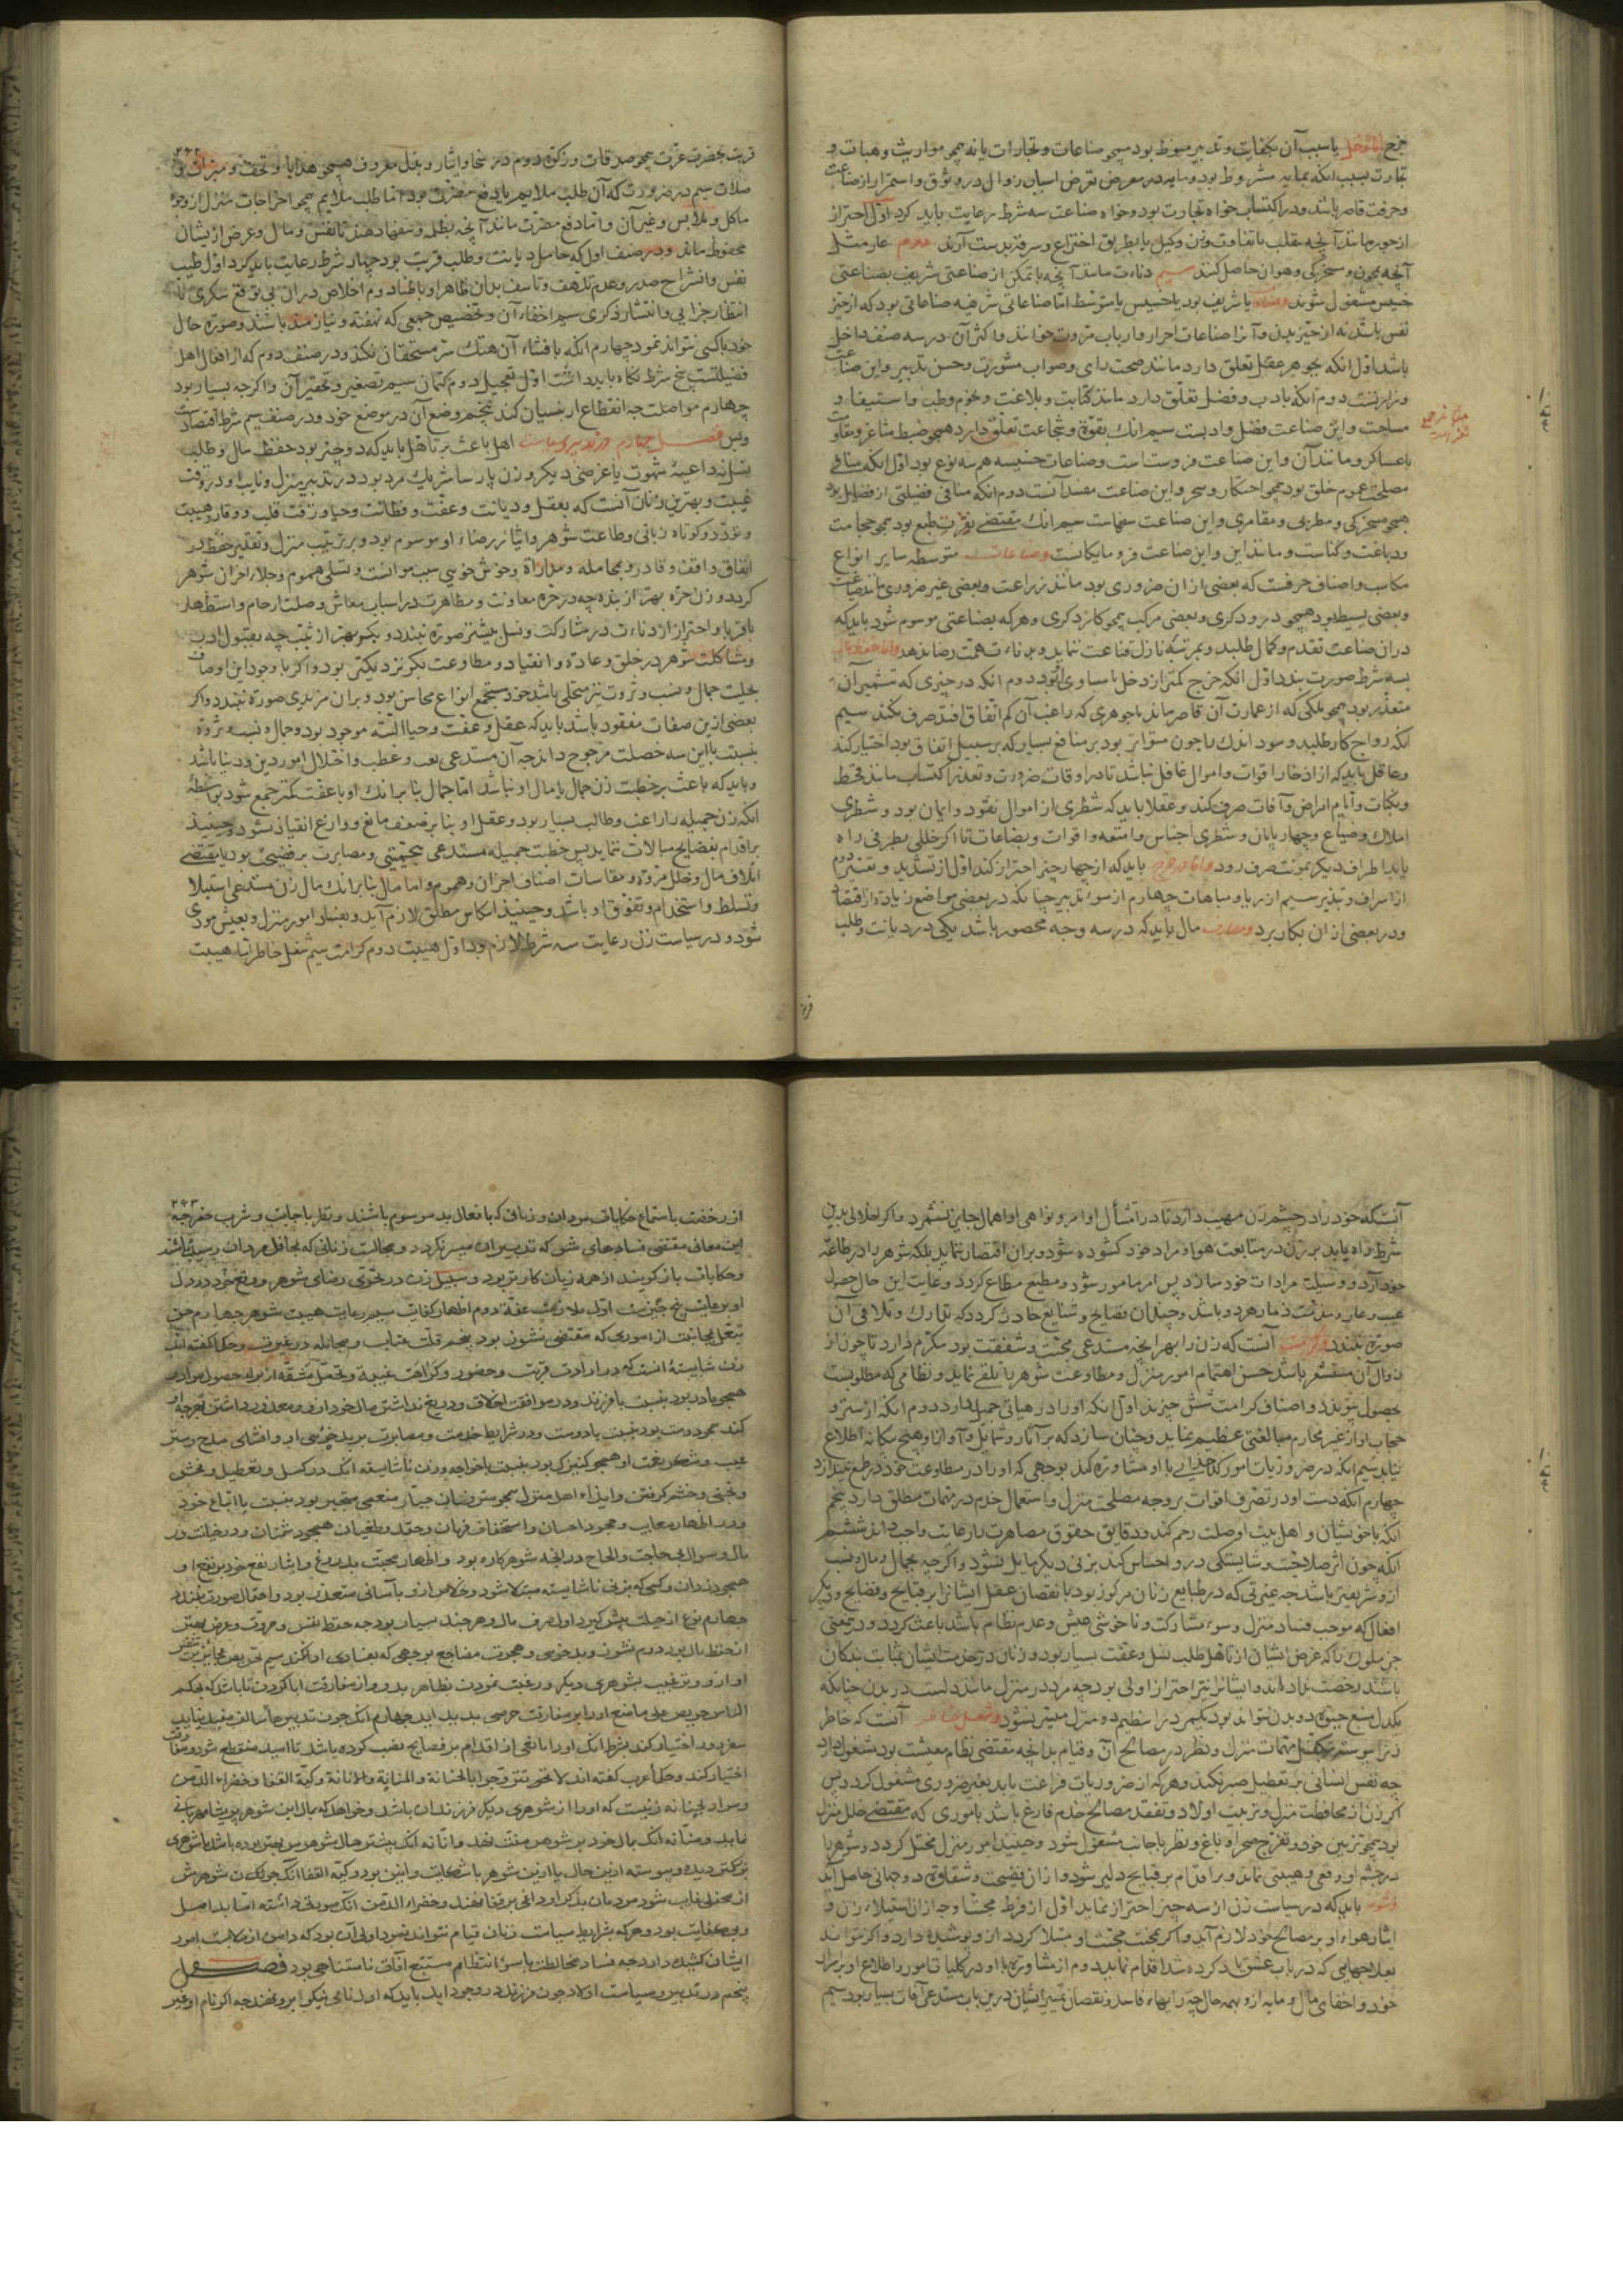 جمع اما دخل یا سبب آن بکفایت و تدبیر منوط بود همچو صناعات و تجارات یا نه همچو مواریث و هبات و
تجارت بسبب آنکه بمایه مشروط بود و مایه در معرض تعرض اسباب زوال در وثوق و استمرار از صناعت
و حرفت قاصر باشد و در اکتساب خواه تجارت بود و خواه صناعت سه شرط رعایت باید کرد اول احتراز
از جور مانند آنچه بتغلب یا تفاوت وزن و کیل یا بطریق اختراع و سرقه بدست آرند دوم عار مثل
آنچه بمجون و سخرکی و هوان حاصل کنند سیم دناءت مانند آنچه با تمکن از صناعتی شریف بصناعتی
خسیس مشغول شوند و صناعات یا شریف بود یا خسیس یا متوسط اما صناعاتی شریفه صناعاتی بود که از حیز
نفس باشد نه از حیز بدن و آنرا صناعات احرار و ارباب مروت خوانند و اکثر آن در سه صنف داخل
باشد اول آنکه بجوهر عقل تعلق دارد مانند صحت رای و صواب مشورت و حسن تدبیر و این صناعت
وزراست دوم آنکه بادب و فضل تعلق دارد مانند کتابت و بلاغت و نجوم و طب و استیفاء و
مساحت و این صناعت فضل و ادبست سیم آنک بقوة و شجاعت تعلق دارد همچو ضبط ثغور و مقاومت
با عساکر و مانند آن و این صناعت فروست است و صناعات خسیسه هر سه نوع بود اول آنکه منافی
مصلحت عموم خلق بود همچو احتکار و سحر و این صناعت مفسدانست دوم آنکه منافی فضیلتی از فضایل بود
همچو مسخرکی و مطربی و مقامری و این صناعت سفهاست سیم آنک مقتضی نفرت طبع بود همچو حجامت
و دباغت و کناست و مانند این و این صناعت فرومایکانست و صناعات متوسطه سایر انواع
مکاسب و اصناف حرفت که بعضی از آن ضروری بود مانند زراعت و بعضی غیر ضروری مانند صیاغت
و بعضی بسیط بود همچو درودکری و بعضی مرکب همچو کاردکری و هر که بصناعتی موسوم شود باید که
در آن صناعت تقدم و کمال طلبد و بمرتبهٔ نازل قناعت ننماید و بدناءت همت رضا ندهد و اما حفظ مال
بسه شرط صورت بندد اول آنکه خرج کمتر از دخل یا مساوی او بود دوم آنکه در چیزی که تثمیر آن
متعذر بود همچو ملکی که از عمارت آن قاصر ماند یا جوهری که راغب آن کم اتفاق افتد صرف نکند سیم
آنکه رواج کار طلبد و سود اندک را چون متواتر بود بر منافع بسیار که بر سبیل اتفاق بود اختیار کند
و عاقل باید که از ادخار اقوات و اموال غافل نباشد تا در اوقات ضرورت و تعذر اکتساب مانند قحط
و نکبات و ایام امراض و آفات صرف کند و عقلا باید که شطری از اموال نقود و ایمان بود و شطری
املاک و ضیاع و چهارپایان و شطری اجناس و امتعه و اقوات و بضاعات تا اگر خللی بطرفی راه
یابد اطراف دیکر بمونت صرف رود و اما در خرج باید که از چهار چیز احتراز کند اول از تشدید و تقتیر دوم
از اسراف و تبذیر سیم از ریا و مباهات چهارم از سوء تدبیر چنانکه در بعضی مواضع زیاده از اقتصاد
و در بعضی از آن بکار برد و مصارف مال باید که در سه وجه محصور باشد یکی در دیانت و طلب
۲۴۲
قربت بحضرت عزت همچو صدقات و زکوة دوم در سخا و ایثار و بذل معروف همچو هدایا و تحف و مبرات و
صلات سیم در ضرورت که آن طلب ملایم یا دفع مضرت بود اما طلب ملایم همچو اخراجات منزل از وجوه
ماکل و ملابس و غیر آن و اما دفع مضرت مانند آنچه بظلمه و سفها دهند تا نفس و مال و عرض از یشان
محفوظ ماند و در صنف اول که حامل دیانت و طلب قربت بود چهار شرط رعایت باید کرد اول طیب
نفس و انشراح صدر و عدم تلهف و تاسف بدان ظاهرا و باطنا دوم اخلاص در آن بی توقع شکری یا
انتظار جزایی و انتشار ذکری سیم اخفاء آن و تخصیص جمعی که نهفته و نیازمند باشند و صورة حال
خود باکسی نتوانند نمود چهارم آنکه بافشاء آن هتک ستر مستحقان نکند و در صنف دوم که از افعال اهل
فضیلتست پنج شرط نکاه باید داشت اول تعجیل دوم کتمان سیم تصغیر و تحقیر آن و اگرچه بسیار بود
چهارم مواصلت چه انقطاع ارنسیان کند پنجم وضع آن در موضع خود و در صنف سیم شرط اقتصادست
و بس فصل چهارم در تدبیر و سیاست اهل باعث بر تأهل باید که دو چیز بود حفظ مال و طلب
نسل نه داعیهٔ شهوت یا غرضی دیکر و زن پارسا شریک مرد بود در تدبیر منزل و نایب او در وقت
غیبت و بهترین زنان آنست که بعقل و دیانت و عفت و فطانت و حیا و رقت قلب و وقار و هیبت
و تودد و کوتاه زبانی و طاعت شوهر و ایثار رضاء او موسوم بود و بر ترتیب منزل و تقدیر حفظ در
انفاق واقف و قادر و بمجامله و مداراة و خوش خویی سبب موانست و تسلی هموم و جلاء احزان شوهر
کردد و زن حرّه بهتر از بنده چه در حره معاونت و مظاهرت در اسباب معاش و صلت ارحام و استظهار
باقربا و احتراز از دناءت در مشارکت و نسل بیشتر صورة بندد و بکر بهتر از ثیب چه بقبول ادب
و مشاکلت شوهر در خلق و عادة و انقیاد و مطاوعت بکر نزدیکتر بود و اگر با وجود این اوصاف
بحلیت جمال و نسب و ثروت نیز متحلی باشد خود مستجمع انواع محاسن بود و بران مزیدی صورة نبندد و اکر
بعضی ازین صفات مفقود باشد باید که عقل و عفت و حیا البته موجود بود و جمال و نسب و ثروة
بنسبت با این سه خصلت مرجوح دانند چه آن مستدعی تعب و عطب و اختلال امور دین و دنیا باشد
و باید که باعث بر خطبت زن جمال یا مال او نباشد اما جمال بنا برانک او با عفت کمتر جمع شود بواسطهٔ
آنکه زن جمیله را راغب و طالب بسیار بود و عقل او بنا بر ضعف مانع و وازع انقیاد نشود و حینئذ
بر اقدام بفضایح مبالات ننماید پس خطبت جمیله مستدعی بی حمیتی و مصابرت بر فضیحتی بود یا مقتضی
اتلاف مال و خلل مروة و مقاسات اصناف احزان و هموم و اما مال بنا برانک مال زن مستدعی استیلا
و تسلط و استخدام و تفوق او باشد و حینئذ انتکاس مطلق لازم آید و بفساد امور منزل و بعیش مودی
شود و در سیاست زن رعایت سه شرط لازم بود اول هیبت دوم کرامت سیم شغل خاطر اما هیبت
آنست که خود را در چشم زن مهیب دارد تا در امتثال اوامر و نواهی او اهمال جایز نشمرد و اگر اخلالی بدین
شرط راه یابد بر زن در متابعت هوا و مراد خود کشوده شود و بران اقتصار ننماید بلکه شوهر را در طاعة
خود آرد و وسیلت مرادات خود سازد پس امر مامور شود و مطیع مطاع کردد و غایت این حال حصول
عیب و عار و مذلت ذمار هر دو باشد و چندان فضایح و شنایع حادث کردد که تدارک و تلافی آن
صورة نبندد و کرامت آنست که زن را بهر آنچه مستدعی محبت و شفقت بود مکرم دارد تا چون از
زوال آن مستشعر باشد بحسن اهتمام امور منزل و مطاوعت شوهر را تلقی نماید و نظامی که مطلوبست
بحصول پیوندد و اصناف کرامت شش چیزند اول آنکه او را در هیأتی جمیل دارد دوم آنکه از ستر و
حجاب او از غیر محارم مبالغتی عظیم نماید و چنان سازد که بر آثار و شمایل و آواز او هیچ بیگانه اطلاع
نیابد سیم آنکه در ضروریات امور کدخدایی با او مشاورة کند بوجهی که او را در مطاوعت خود در طمع نیندازد
چهارم آنکه دست او در تصرف اقوات بر وجه مصلحت منزل و استعمال خدم در مهمات مطلق دارد پنجم
آنکه با خویشان و اهل بیت او صلت رحم کند و دقایق حقوق مصاهرت را رعایت واجب داند ششم
آنکه چون اثر صلاحیت و شایستکی در و احساس کند بزنی دیکر مایل نشود و اگرچه بجمال و مال و نسب
ازو شریفتر باشد چه غیرتی که در طبایع زنان مرکوز بود با نقصان عقل ایشانرا بر قبایح و فضایح و دیکر
افعال که موجب فساد منزل و سوء مشارکت و ناخوشی عیش و عدم نظام باشد باعث کردد و درین معنی
جز ملوک را که غرض ایشان از تاهل طلب نسل و عقبت بسیار بود و زنان در خدمت ایشان بمثابت بندکان
باشند رخصت نداده‌اند و ایشانرا نیز احتراز اولی بود چه مرد در منزل مانند دلست در بدن چنانکه
یکدل منبع حیوة دو بدن نتواند بود یکمرد را تنظیم دو منزل میسر نشود و شغل خاطر آنست که خاطر
زن پیوسته بتکفل مهمات منزل و نظر در مصالح آن و قیام بدانچه مقتضی نظام معیشت بود مشغول دارد
چه نفس انسانی بر تعطیل صبر نکند و هرکه از ضروریات فراغت یابد بغیر ضروری مشغول کردد پس
اکر زن از محافظت منزل و تربیت اولاد و تفقد مصالح خدم فارغ باشد باموری که مقتضی خلل منزل
بود همچو تزیین خود و تفرج صحرا و باغ و نظر باجانب مشغول شود و حینئذ امور منزل مختل کردد و شوهر را
در چشم او وقعی و هیبتی نماند و بر اقدام بر قبایح دلیر شود و از آن فضیحت و شقاوة دو جهانی حاصل آید
و شوهر باید که در سیاست زن از سه چیز احتراز نماید اول از فرط محبت او چه از آن استیلاء زن و
ایثار هواء او بر مصالح خود لازم آید و اکر بمحنت محبت او مبتلا کردد از و پوشیده دارد و اکر نتواند
بعلاجهایی که در باب عشق یاد کرده شد اقدام نماید دوم از مشاورة با او در کلیات امور و اطلاع او بر اسرار
خود و اخفای مال و مایه ازو بهمه حال چه رایهاء فاسد و نقصان تمییز ایشان درین باب مستدعی آفات بسیار بود سیم
۲۴۳
از رخصت باستماع حکایات مردان و زنان که بافعال بد موسوم باشند و نظر باجانب و شرب خمر چه
این معانی مقتضی فسادهای شود که تدبیر آن میسر نکردد و مجالست زنانی که بمحافل مردان رسیده باشند
و حکایات باز کویند از همه زیان کارتر بود و سبیل زن در تحری رضای شوهر و وقع خود در دل
او رعایت پنج چیزست اول ملازمت عفة دوم اظهار کفایت سیم رعایت هیبت شوهر چهارم حسن
تبعل و مجانبت از اموری که مقتضی نشوز بود پنجم قلت عتاب و مجامله در غیرت و حکما کفته‌اند
زن شایسته آنست که در ارادت قربت و حضور و کراهت غیبة و تحمل مشقه از برای حصول مراد او
همچو مادر بود بنسبت با فرزند و در موافقت اخلاق و دریغ نداشتن مال خود ازو و معذور داشتن بهرچه او
کند همچو دوست بود بنسبت با دوست و در شرایط خدمت و مصابرت بر بدخویی او و افشای مدح و ستر
عیب و شکر نعمت او همچو کنیزکی بود بنسبت با خواجه و زن ناشایسته آنک در کسل و تعطیل و فحش
و تجنی و خشم گرفتن و ایذاء اهل منزل همچو ستم رسان جبار متغلبی متجبر بود بنسبت با اتباع خود
و در اظهار معایب و جحود احسان و استخفاف فرمان و حقد و طغیان همچو دشمنان و در خیانت در
مال و سوال بی حاجت و الحاح در آنچه شوهر کاره بود و اظهار محبت بدروغ و ایثار نفع خود بر نفع او
همچو دزدان و کسی که بزنی ناشایسته مبتلا شود و خلاص ازو بآسانی متعذر بود و احتمال صورت نبندد
چهار نوع از حیلت پیش گیرد اول صرف مال و هر چند بسیار بود چه حفظ نفس و مروت و عرض بهتر
از حفظ مال بود دوم نشوز و بدخویی و هجرت مضاجع بوجهی که بفسادی ادا نکند سیم تحریص عجایز بر تنفیر
او ازو و ترغیب بشوهری دیکر و رغبت نمودن بظاهر بدو و از مفارقت ابا کردن تا باشد که بحکم
الناس حریص علی ما منع او را بر مفارقت حرصی پدید آید چهارم آنک چون تدبیر های سالف مفید نیاید
سفر دور اختیار کند بشرط آنک او را مانعی از اقدام بر فضایح نصب کرده باشد تا امید منقطع شود و مفارقت
اختیار کند و حکماء عرب کفته‌اند لا تتزوجوا بالحنانة و المنانة و الانانة و کیة القفا و خضراء الدمن
و مراد بحنانه زنیست که او را از شوهری دیکر فرزندان باشد و خواهد که بمال این شوهر بریشان مهربانی
نماید و منانه آنک بمال خود بر شوهر منت نهد و انانه آنک پیشتر حال شوهرش بهتر بوده باشد یا شوهری
بزرگتر دیده و پیوسته ازین حال یا ازین شوهر با شکایت و انین بود و کیة القفا آنک چون آن شوهرش
از محفلی غایب شود مردمان بذکر او داغی بر قفا نهند و خضراء الدمن آنک صورتی داشته اما بد اصل
و بی عفت بود و هر که بشرایط سیاست زنان قیام نتواند نمود اولی آن بود که دامن از ملابست امور
ایشان کشیده دارد چه فساد مخالطت با سوء انتظام مستتبع آفات نامتناهی بود فصل
پنجم در تدبیر و سیاست اولاد چون فرزند در وجود آید باید که اول نامی نیکو بر و نهند چه اگر نام او غیر